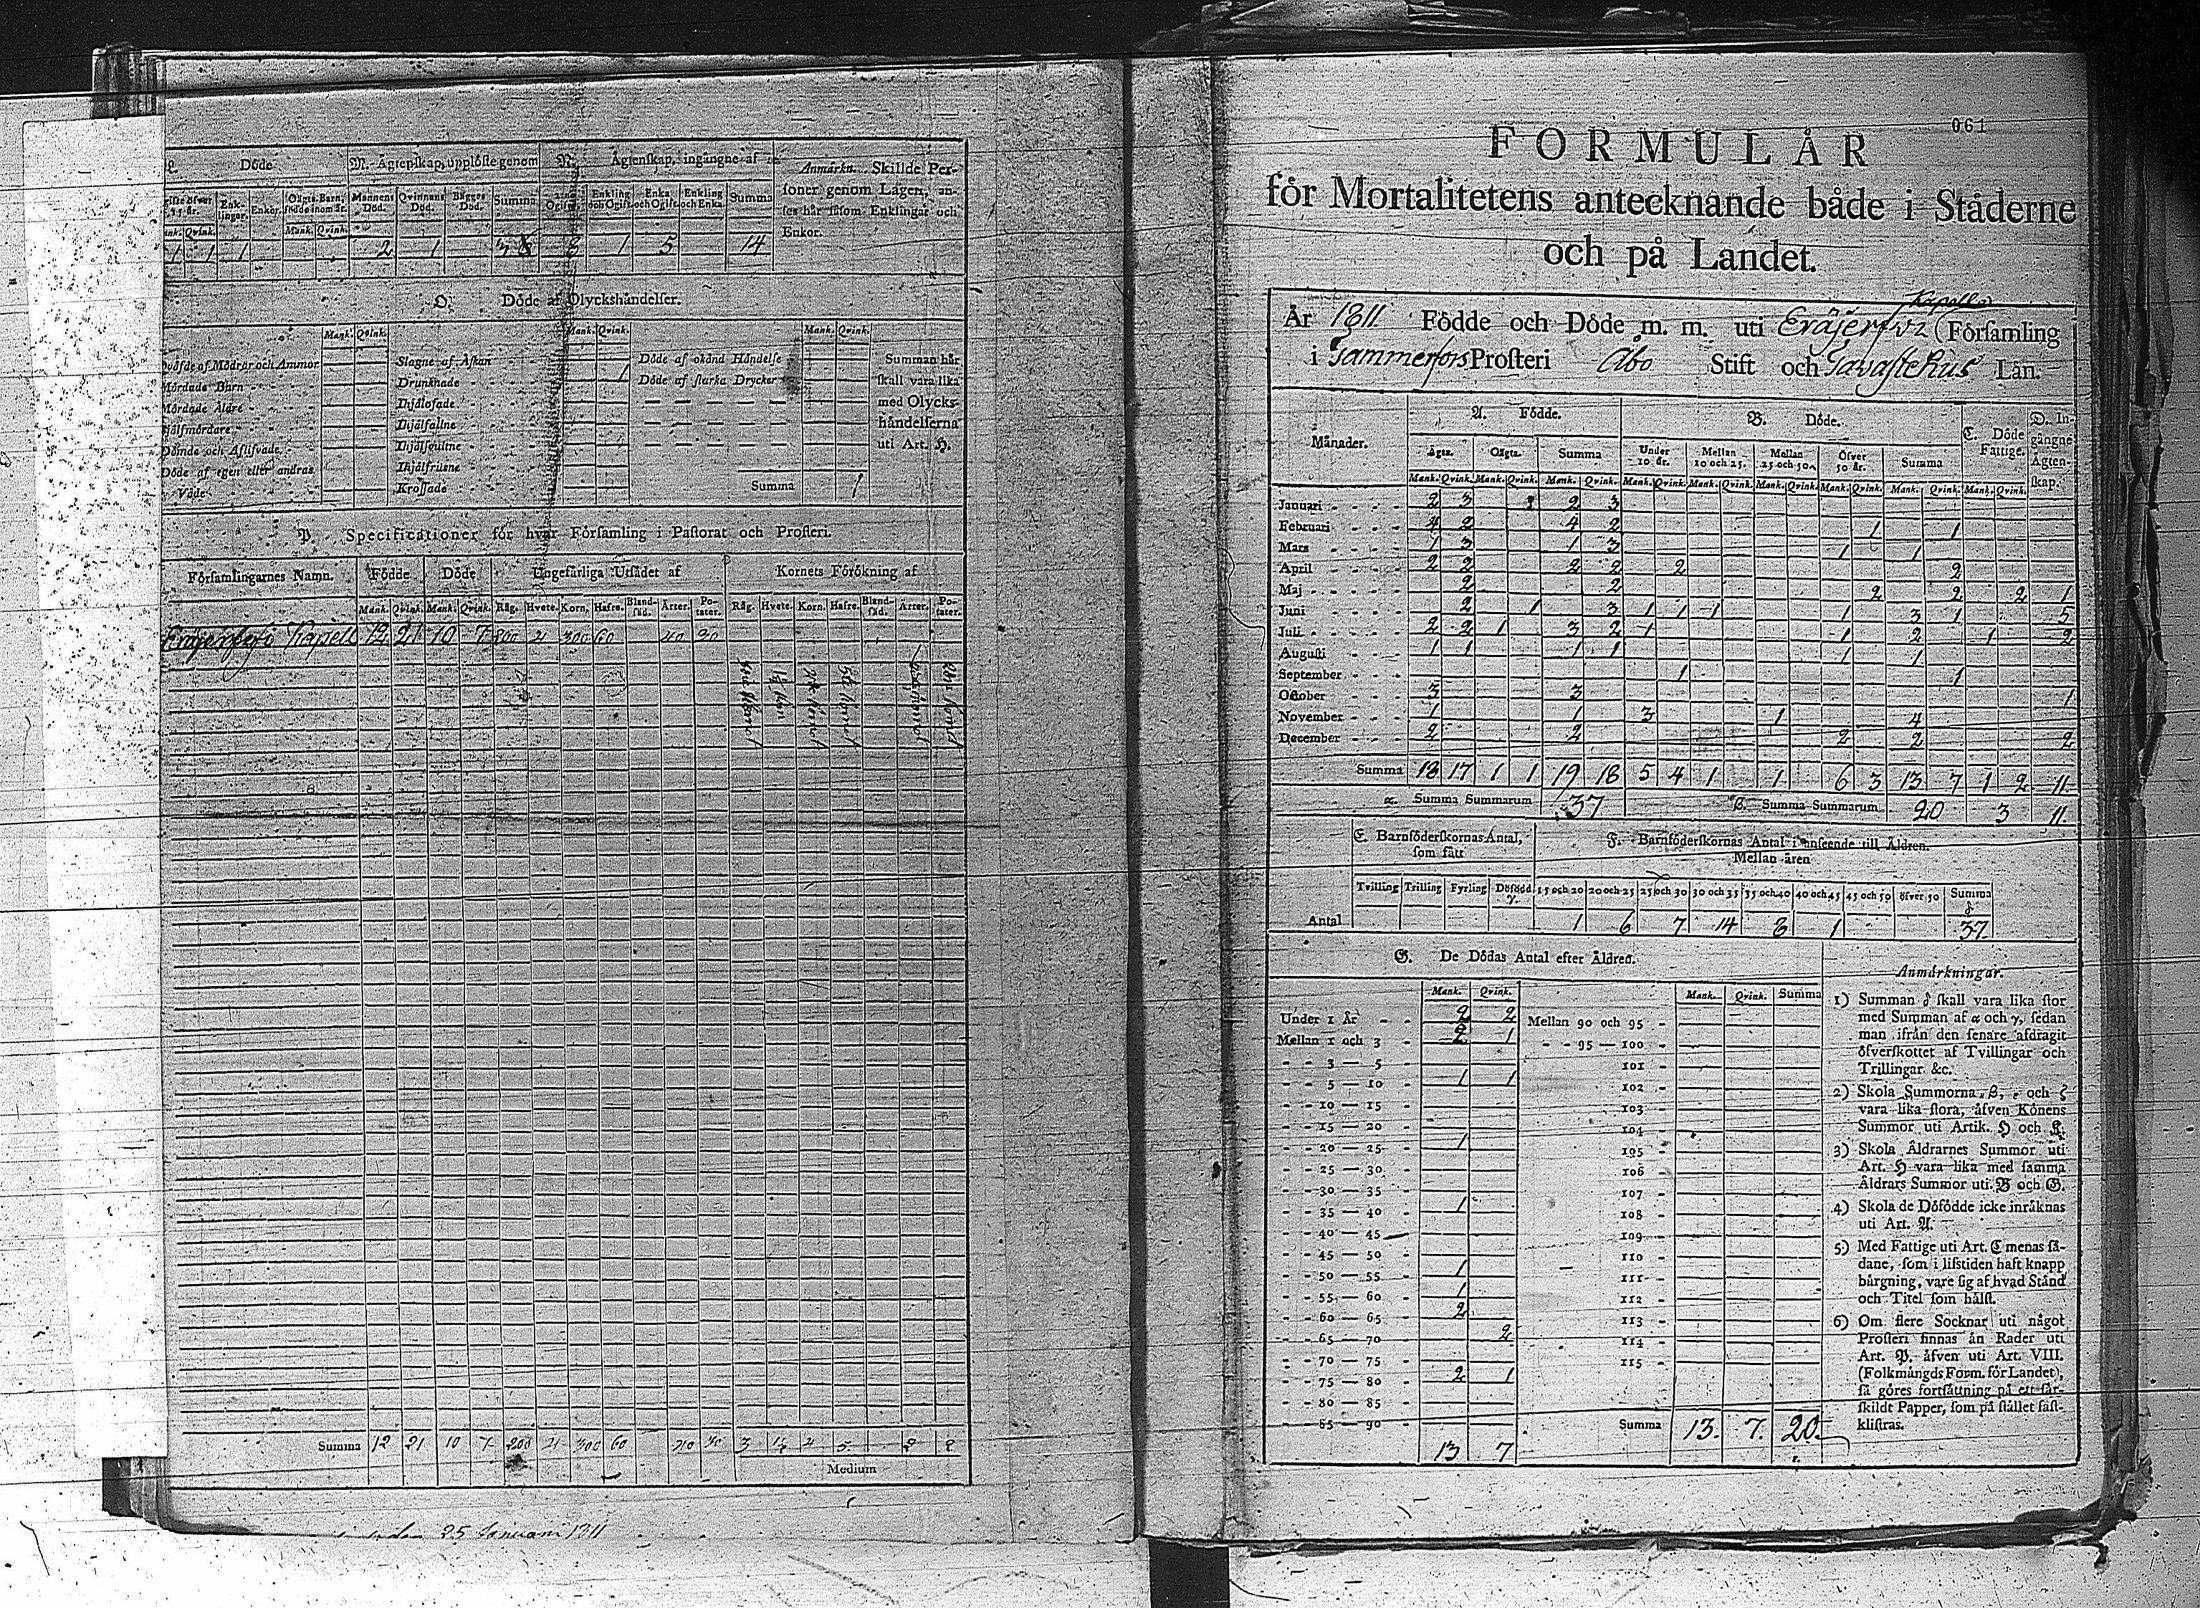 Döde
N. Ägtenskap, upplöste genom
Ägtenskap, ingångne af
Enk-lingar.
Enkor.
Oägta Barn, födde inom år.
Mannens Död.
Qvinnans Död.
Bägges Död.
Summa
Enkling och Ogift.
Enka och Ogift.
Enkling och Enka.
Summa
Anmärkn. Skillde Per-
soner genom Lagen, an-
ses här såsom Enklingar och
Enkor.
Mank. Qvink.
1 1 1 2 1 3 8 1 5 14
O. Döde af Olyckshändelser.
Mank. Qvink. Mank. Qvink. Mank. Qvink.
qväfde af Mödrar och Ammor
Mördade Barn
Mördade Äldre
själfmördare
Dömde och Aflifvade
Döde af egen eller andras
Våde
Slagne af Åskan
Drunknade 1
Ihjälosade
Ihjälfallne
Ihjälsvultne
Ihjälfrusne
Krossade
Döde af okänd Händelse
Döde af starka Drycker
Summa 1
Summan här
skall vara lika
med Olycks-
händelserna
uti Art. H.
P. Specificationer för hvar Församling i Pastorat och Prosteri.
Församlingarnes Namn. Födde Döde Ungefärliga Utsädet af Kornets Förökning af
Mank. Qvink. Mank. Qvink. Råg. Hvete. Korn. Hafre. Bland-säd. Ärter. Po-tater. Råg. Hvete. Korn. Hafre. Bland-säd. Ärter. Po-tater.
Kapell 12 21 10 7 200 2 300 60 20 30
Summa 12 21 10 7 200 2 300 60 20 30 3 1½ 4 5 2 8
Medium
25 Januarii 1811
061
FORMULÄR
för Mortalitetens antecknande både i Städerne
och på Landet.
Kapells
År 1811. Födde och Döde m. m. uti Eräjerfvi Församling
i Tammerfors Prosteri Åbo Stift och Tavastehus Län.
Månader.
A. Födde.
B. Döde.
C. Döde Fattige.
D. In-gångne Ägten-skap.
Ägta. Oägta. Summa Under 10 år. Mellan 10 och 25. Mellan 25 och 50. Öfver 50 år. Summa
Mank. Qvink. Mank. Qvink. Mank. Qvink. Mank. Qvink. Mank. Qvink. Mank. Qvink. Mank. Qvink. Mank. Qvink. Mank. Qvink.
Januari 2 3 2 3
Februari 4 2 4 2 1 1
Mars 1 3 1 3 1 1
April 2 2 2 2 2 2
Maj 2 2 2 2 2 1
Juni 2 1 3 1 1 1 1 3 1 5
Juli 2 2 1 3 2 1 1 2 1 2
Augusti 1 1 1 1 1 1
September 1 1
October 3 3 1
November 1 1 3 1 4
December 2 2 2 2 2
Summa 18 17 1 1 19 18 5 4 1 1 6 3 13 7 1 2 11
α. Summa Summarum 37 β. Summa Summarum 20 3 11
E. Barnföderskornas Antal, som fått
F. Barnföderskornas Antal i anseende till Åldren.
Mellan åren
Tvilling Trilling Fyrling Dödfödd γ. 15 och 20 20 och 25 25 och 30 30 och 35 35 och 40 40 och 45 45 och 50 öfver 50 Summa δ
Antal 1 6 7 14 8 1 37
G. De Dödas Antal efter Åldren.
Mank. Qvink. Mank. Qvink. Summa
Under 1 År 2 2 Mellan 90 och 95
Mellan 1 och 3 2 1 95 — 100
3 — 5 101
5 — 10 1 1 102
10 — 15 103
15 — 20 104
20 — 25 1 105
25 — 30 106
30 — 35 107
35 — 40 1 108
40 — 45 109
45 — 50 110
50 — 55 1 111
55 — 60 1 112
60 — 65 2 113
65 — 70 2 114
70 — 75 115
75 — 80 2 1
80 — 85
85 — 90
13 7
Summa 13. 7. 20.
Anmärkningar.
1) Summan δ skall vara lika stor
med Summan af α och γ, sedan
man ifrån den senare afdragit
öfverskottet af Tvillingar och
Trillingar &c.
2) Skola Summorna β, ε och ζ
vara lika stora, äfven Könens
Summor uti Artik. H och K.
3) Skola Åldrarnes Summor uti
Art. H vara lika med samma
Åldrars Summor uti B och G.
4) Skola de Döfödde icke inräknas
uti Art. A.
5) Med Fattige uti Art. C menas så-
dane, som i lifstiden haft knapp
bärgning, vare sig af hvad Stånd
och Titel som hälst.
6) Om flere Socknar uti något
Prosteri finnas än Rader uti
Art. P. äfven uti Art. VIII.
(Folkmängds Form. för Landet),
så göres fortsättning på ett sär-
skildt Papper, som på stället fast-
klistras.